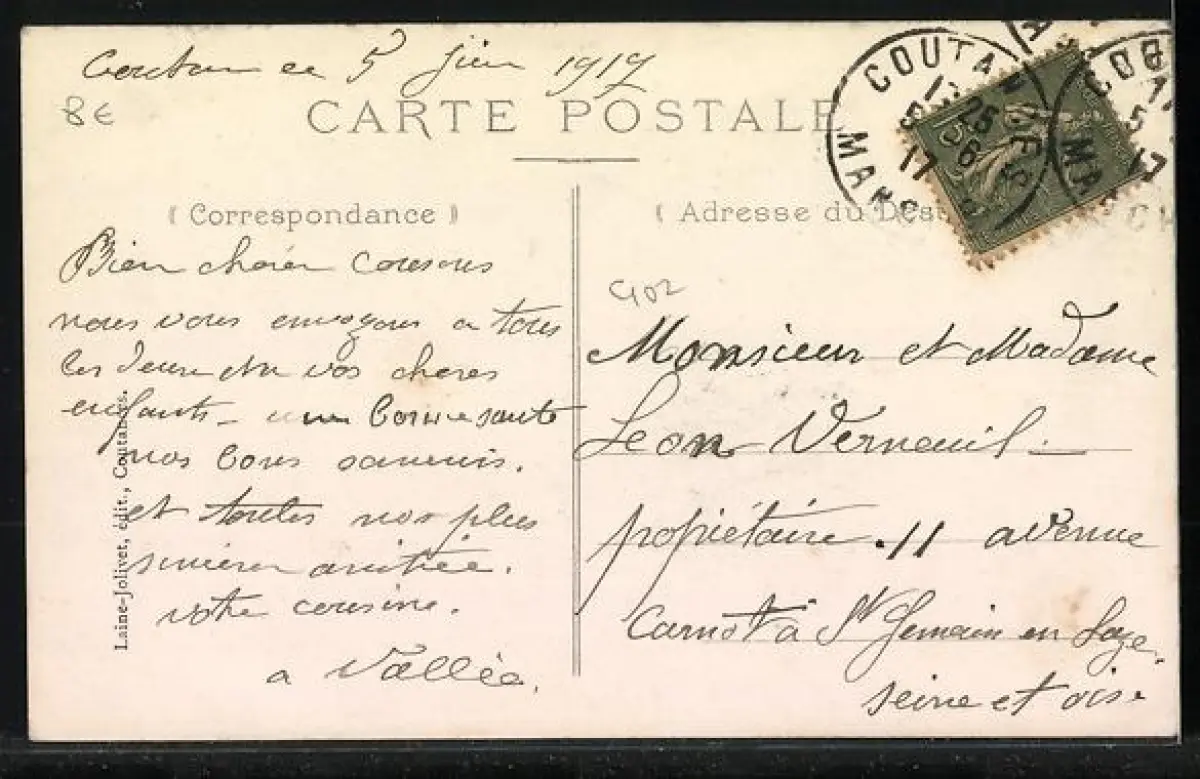 Coutances 5 juin 1917
8€
CARTE POSTALE
Correspondance
Adresse du Dest
COUTANCES
13 25
5 6
17
MANCHE
Bien chères cousins
nous vous envoyons a tous
les deux et a vos cheres
enfants - une bonne sante
nos bons souvenirs.
et toutes nos plus
sincères amitiée.
votre cousine.
a Vallée.
Laine-Jolivet, édit., Coutances.
Monsieur et Madame
Leon Verneuil -
propiétaire. 11 avenue
Carnot à St Germain en Laye.
seine et oise